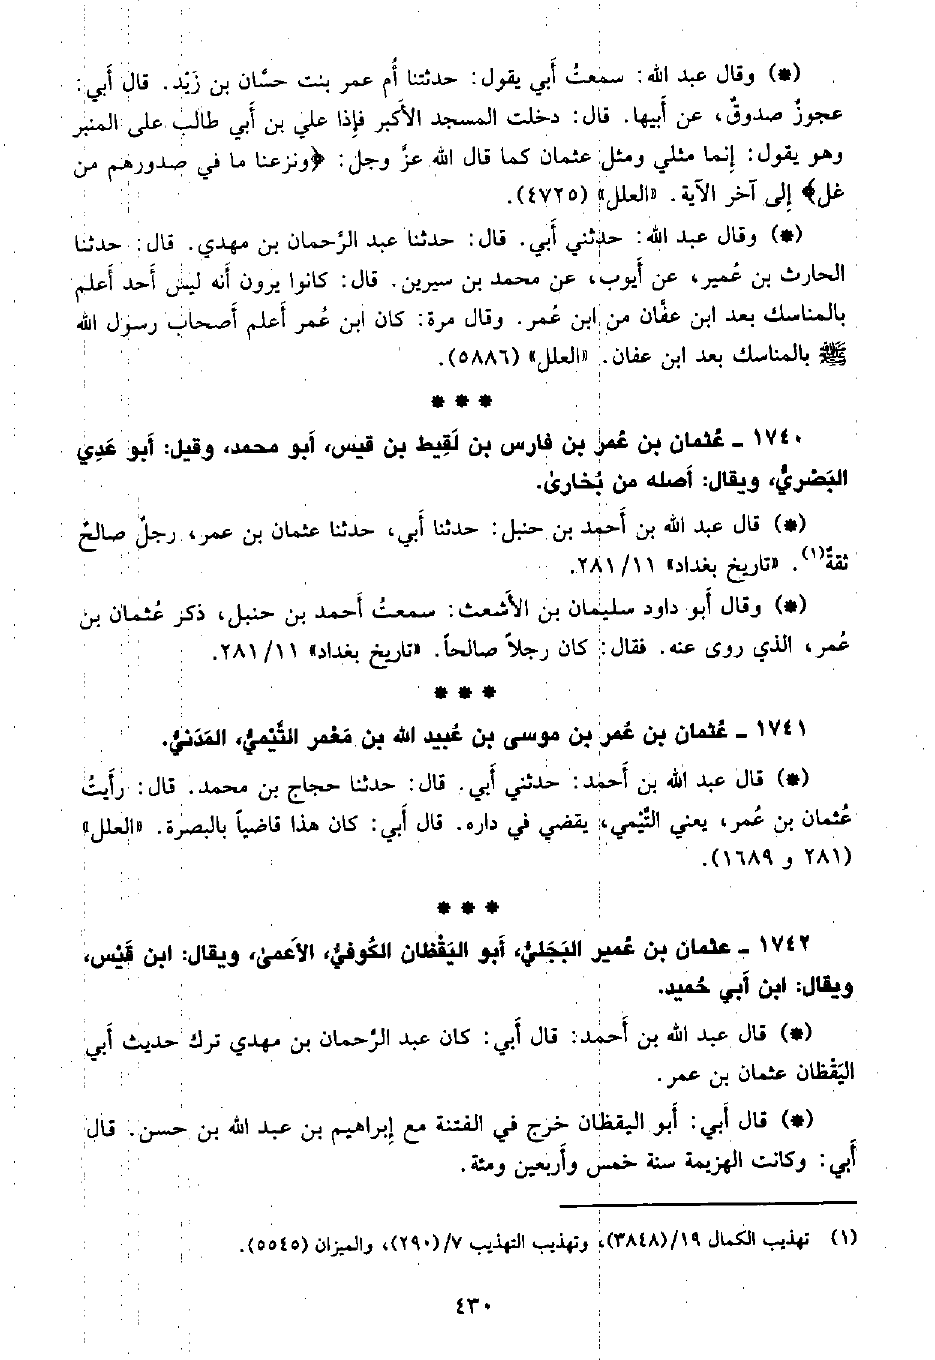 (*) وقال عبد الله: سمعتُ أبي يقول: حدثتنا أُم عمر بنت حسَّان بن زَيْد. قال أَبي:
عجوزٌ صدوقٌ، عن أَبيها. قال: دخلت المسجد الأَكبر فإِذا علي بن أَبي طالب على المنبر
وهو يقول: إِنما مثلي ومثل عثمان كما قال الله عزَّ وجل: ﴿ونزعنا ما في صدورهم من
غل﴾ إِلى آخر الآية. «العلل» (٤٧٢٥).
(*) وقال عبد الله: حدثني أَبي. قال: حدثنا عبد الرَّحمان بن مهدي. قال: حدثنا
الحارث بن عُمير، عن أَيوب، عن محمد بن سيرين. قال: كانوا يرون أنه ليس أحد أعلم
بالمناسك بعد ابن عفَّان من ابن عُمر. وقال مرة: كان ابن عُمر أَعلم أَصحاب رسول الله
ﷺ بالمناسك بعد ابن عفان. «العلل» (٥٨٨٦).
* * *
١٧٤٠ ـ عُثمان بن عُمر بن فارس بن لَقِيط بن قيس، أبو محمد، وقيل: أبو عَدِي
البَصْريُّ، ويقال: أصله من بُخارىٰ.
(*) قال عبد الله بن أَحمد بن حنبل: حدثنا أَبي، حدثنا عثمان بن عمر، رجلٌ صالحٌ
ثقةٌ(١). «تاريخ بغداد» ٢٨١/١١.
(*) وقال أَبو داود سليمان بن الأَشعث: سمعتُ أَحمد بن حنبل، ذكر عُثمان بن
عُمر، الذي روى عنه. فقال: كان رجلاً صالحاً. «تاريخ بغداد» ٢٨١/١١.
* * *
١٧٤١ ـ عُثمان بن عُمر بن موسى بن عُبيد الله بن مَعْمر التَّيْميُّ، المَدَنيُّ.
(*) قال عبد الله بن أَحمد: حدثني أَبي. قال: حدثنا حجاج بن محمد. قال: رأَيتُ
عُثمان بن عُمر، يعني التَّيْمي، يقضي في داره. قال أَبي: كان هذا قاضياً بالبصرة. «العلل»
(٢٨١ و ١٦٨٩).
* * *
١٧٤٢ ـ عثمان بن عُمير البَجَليُّ، أبو اليَقْظان الكُوفيُّ، الأعمىٰ، ويقال: ابن قَيْس،
ويقال: ابن أَبي حُميد.
(*) قال عبد الله بن أَحمد: قال أَبي: كان عبد الرَّحمان بن مهدي ترك حديث أَبي
اليَقْظان عثمان بن عمر.
(*) قال أَبي: أَبو اليقظان خرج في الفتنة مع إِبراهيم بن عبد الله بن حسن. قال
أَبي: وكانت الهزيمة سنة خمس وأَربعين ومئة.
(١) تهذيب الكمال ١٩/(٣٨٤٨)، وتهذيب التهذيب ٧/(٢٩٠)، والميزان (٥٥٤٥).
٤٣٠